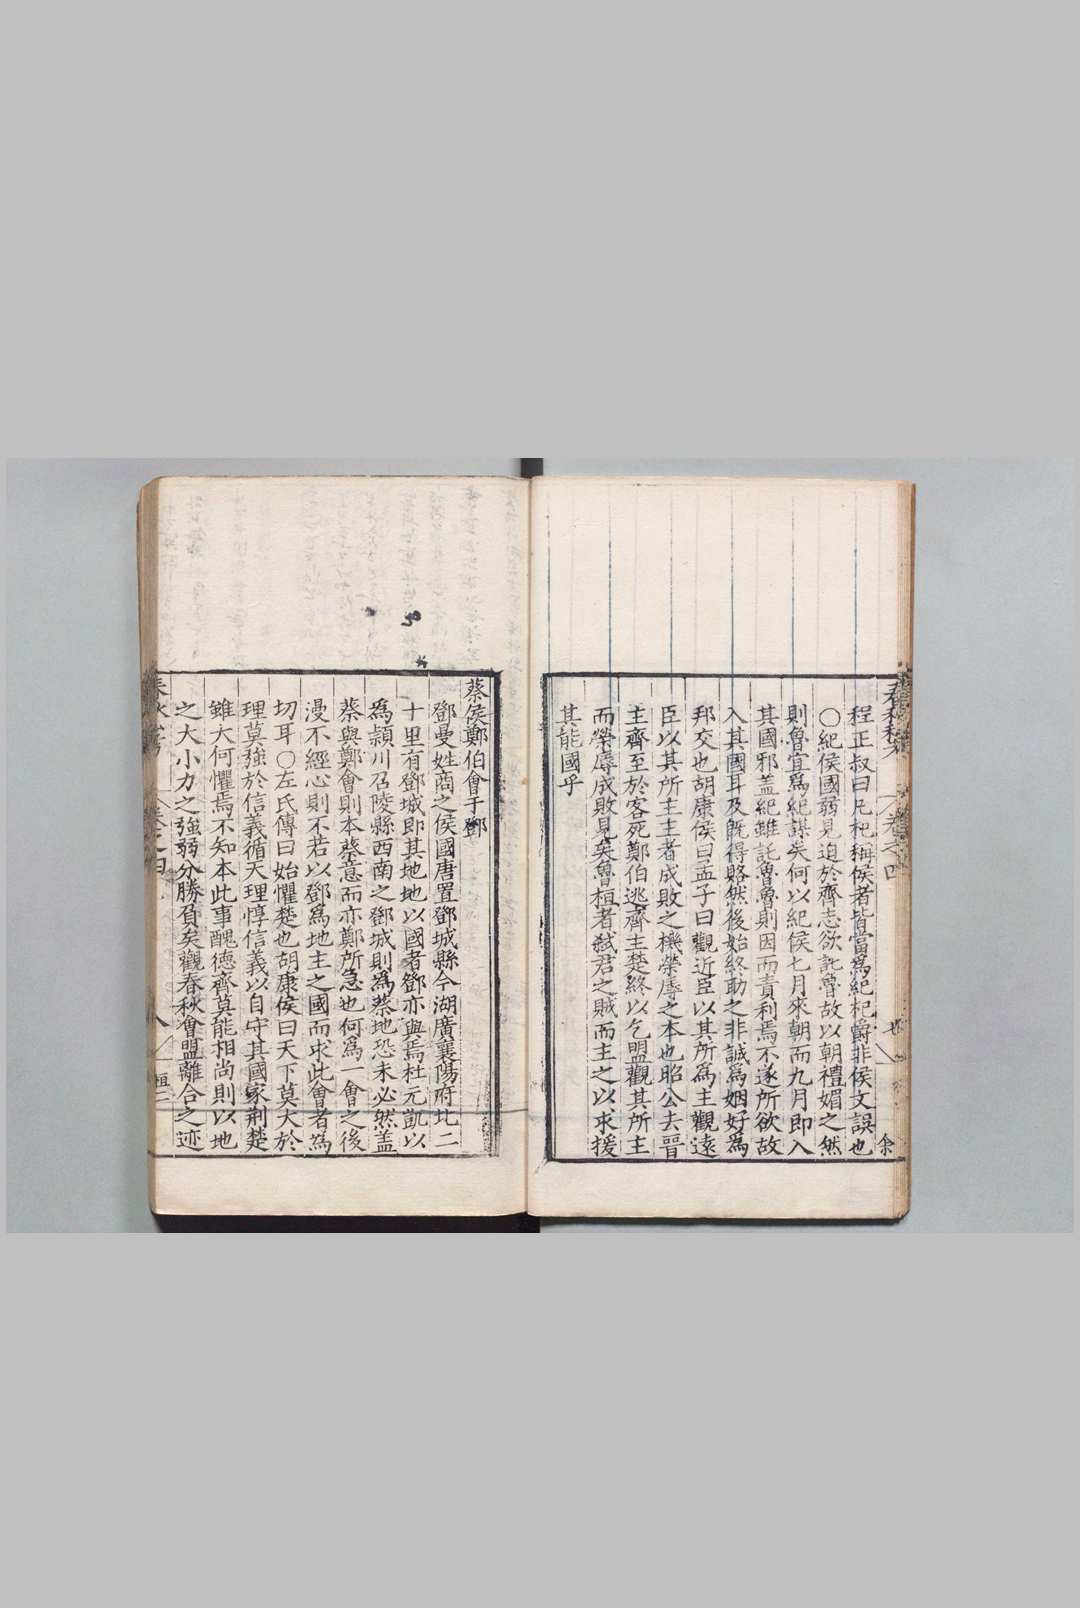 程正叔曰凡杞稱侯者皆當爲紀杞爵非侯文誤也
○紀侯國弱見迫於齊志欲託魯故以朝禮媚之然
則魯宜爲紀謀矣何以紀侯七月來朝而九月即入
其國邪盖紀雖託魯魯則因而責利焉不遂所欲故
入其國耳及旣得賂然後始終助之非誠爲姻好爲
邦交也胡康侯曰孟子曰觀近臣以其所爲主觀遠
臣以其所主主者成敗之機榮辱之本也昭公去晉
主齊至於客死鄭伯逃齊主楚終以乞盟觀其所主
而榮辱成敗見矣魯桓者弑君之賊而主之以求援
其能國乎
蔡侯鄭伯會于鄧
鄧曼姓商之侯國唐置鄧城縣今湖廣襄陽府北二
十里有鄧城即其地地以國者鄧亦與焉杜元凱以
爲潁川召陵縣西南之鄧城則爲蔡地恐未必然盖
蔡與鄭會則本蔡意而亦鄭所急也何爲一會之後
漫不經心則不若以鄧爲地主之國而求此會者爲
切耳○左氏傳曰始懼楚也胡康侯曰天下莫大於
理莫強於信義循天理惇信義以自守其國家荆楚
雖大何懼焉不知本此事醜德齊莫能相尚則以地
之大小力之強弱分勝負矣觀春秋會盟離合之迹
卷之四
桓二